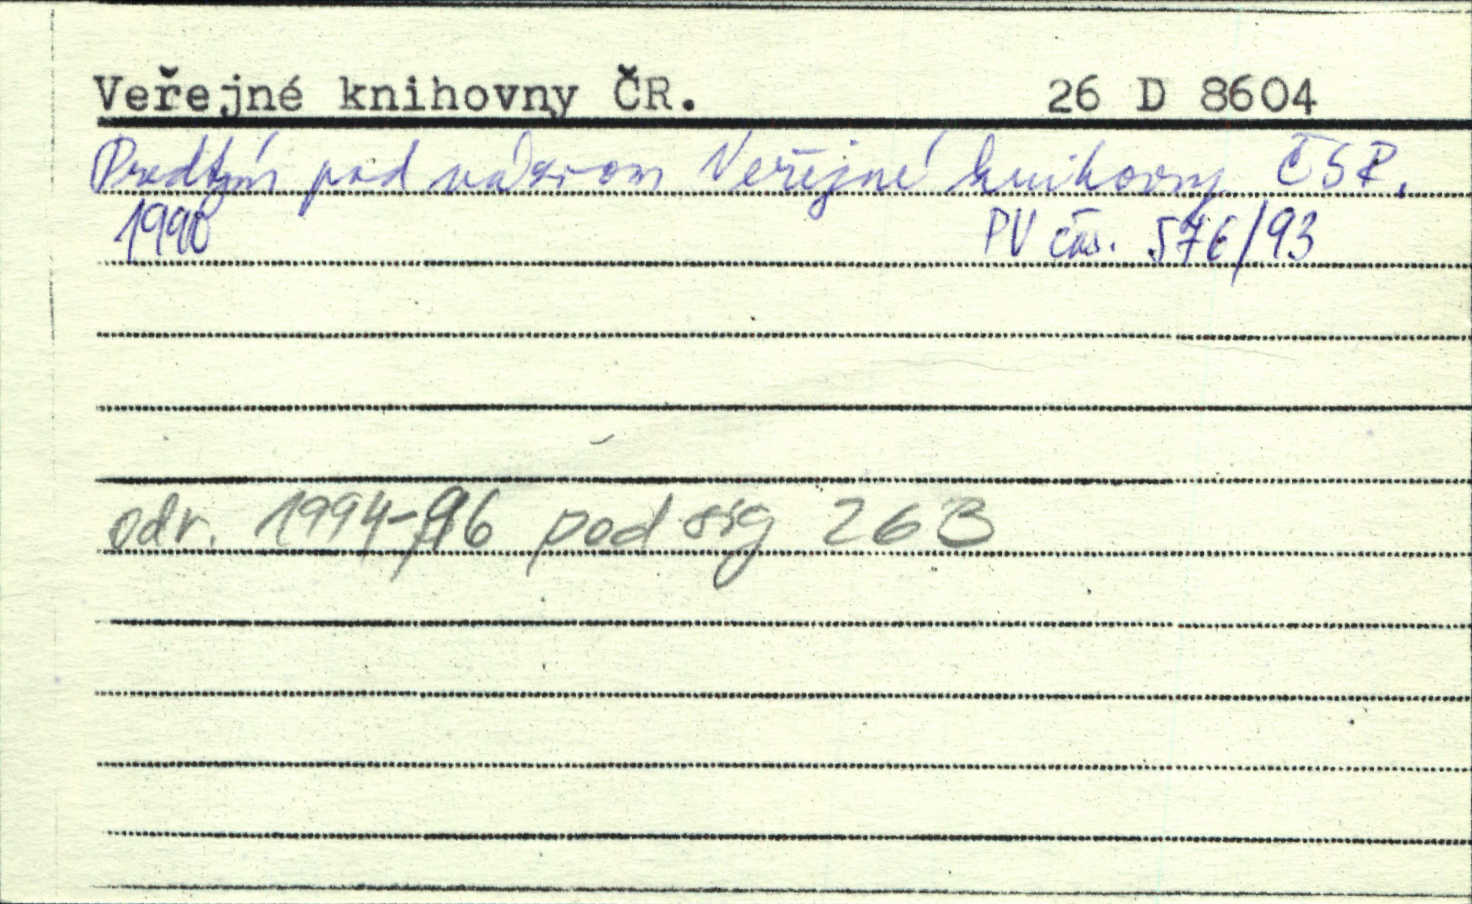 Veřejné knihovny ČR. 26 D 8604
Predtým pod názvom Veřejné knihovny ČSR.
1990 PV čas. 576/93
odr. 1994-96 pod sig 26 B